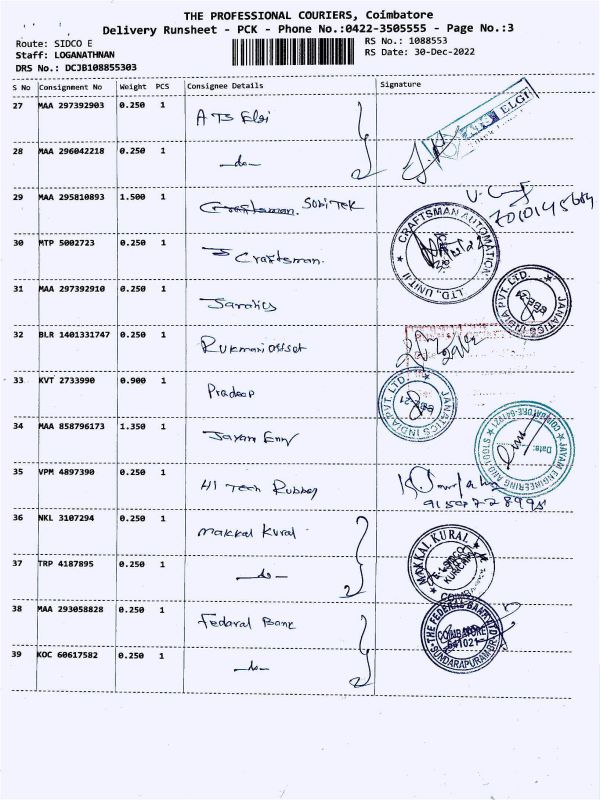 THE PROFESSIONAL COURIERS, Coimbatore
Delivery Runsheet - PCK - Phone No.:0422-3505555 - Page No.:3
Route: SIDCO E
RS No.: 1088553
Staff: LOGANATHNAN
RS Date: 30-Dec-2022
DRS No.: DCJB108855303
S No Consignment No Weight PCS Consignee Details Signature
27 MAA 297392903 0.250 1 ATS Elgi
ELGI
28 MAA 296042218 0.250 1 -do-
29 MAA 295810893 1.500 1 Craftsman. SubiTek
30 MTP 5002723 0.250 1 Craftsman.
CRAFTSMAN AUTOMATION LTD., UNIT-II
31 MAA 297392910 0.250 1
JANATICS INDIA PVT. LTD.
32 BLR 1401331747 0.250 1 Rukmani offset
33 KVT 2733990 0.900 1 Pradeep
JANATICS INDIA PVT. LTD.
34 MAA 858796173 1.350 1 Jayam Enny
JAYAM ENGINEERING AND TOOLS
COIMBATORE-641021
Date:
35 VPM 4897390 0.250 1 HI Tech Rubber
36 NKL 3107294 0.250 1 Makkal Kural
37 TRP 4187895 0.250 1 -do-
MAKKAL KURAL
SIDCO
38 MAA 293058828 0.250 1 Fedaral Bank
THE FEDERAL BANK LTD
COIMBATORE
641021
SUNDARAPURAM BR
39 KOC 60617582 0.250 1 -do-